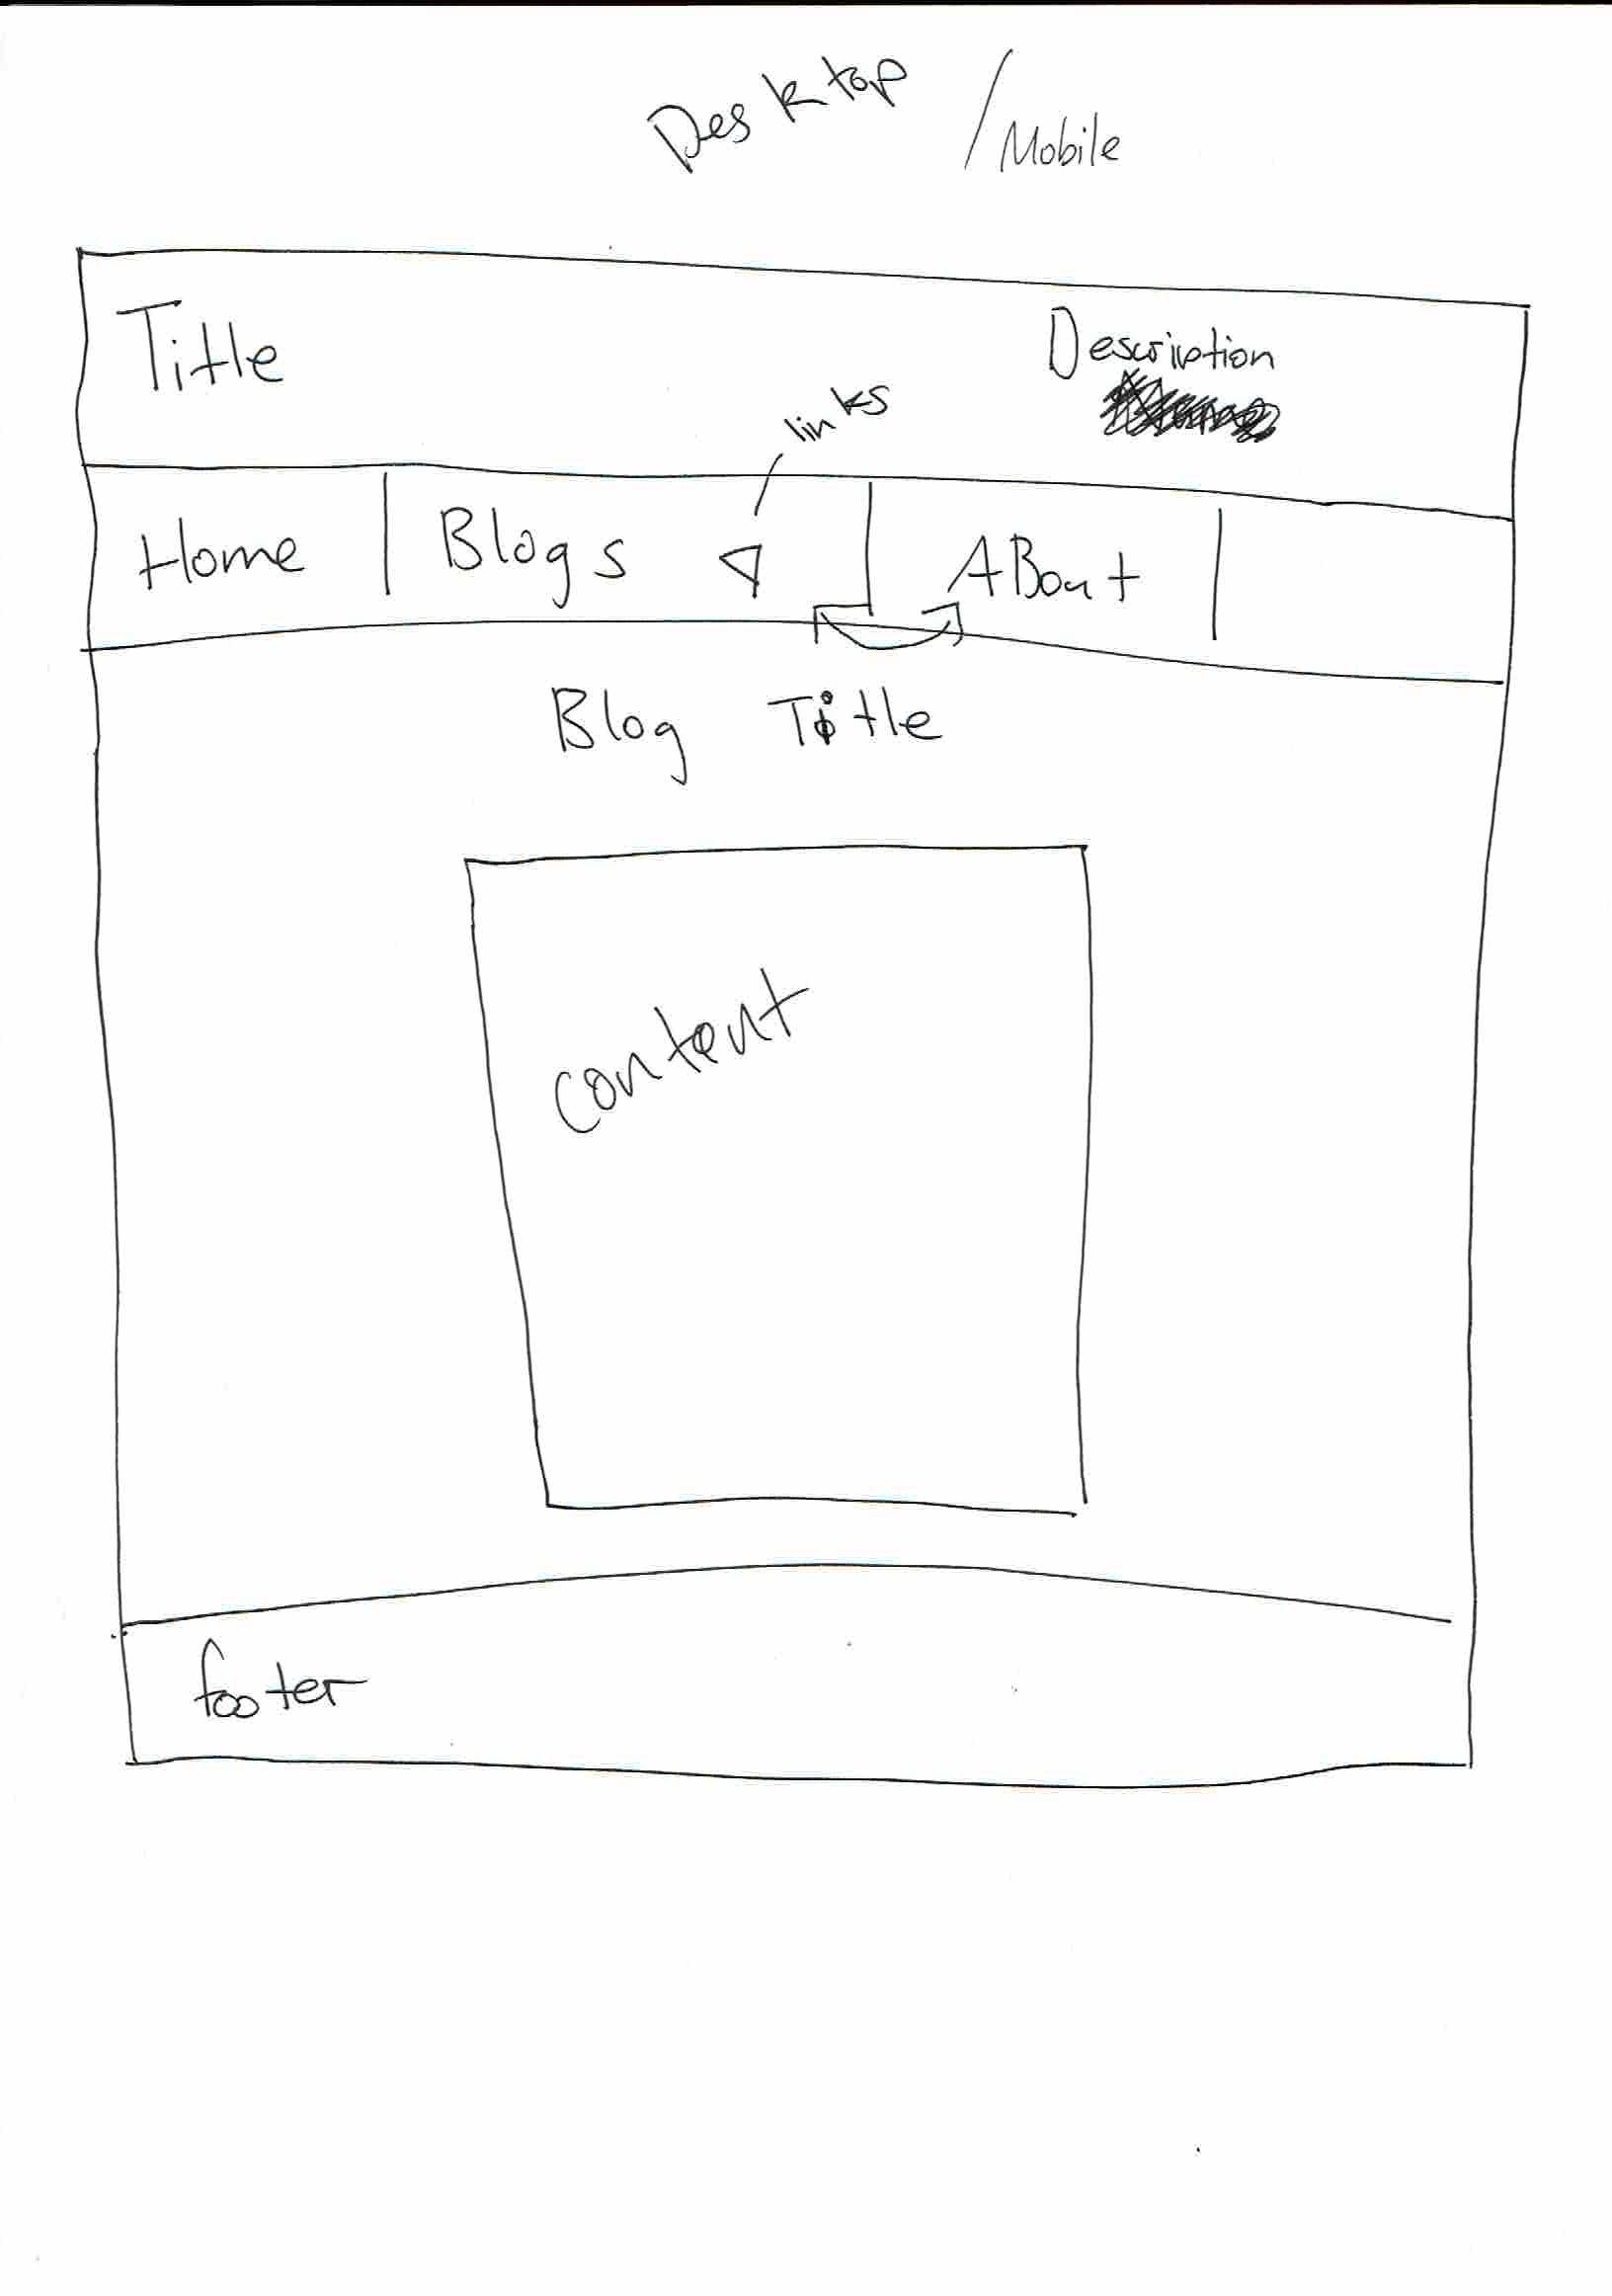 Desktop / Mobile
Title Description
links
Home Blogs ABout
Blog Title
content
footer